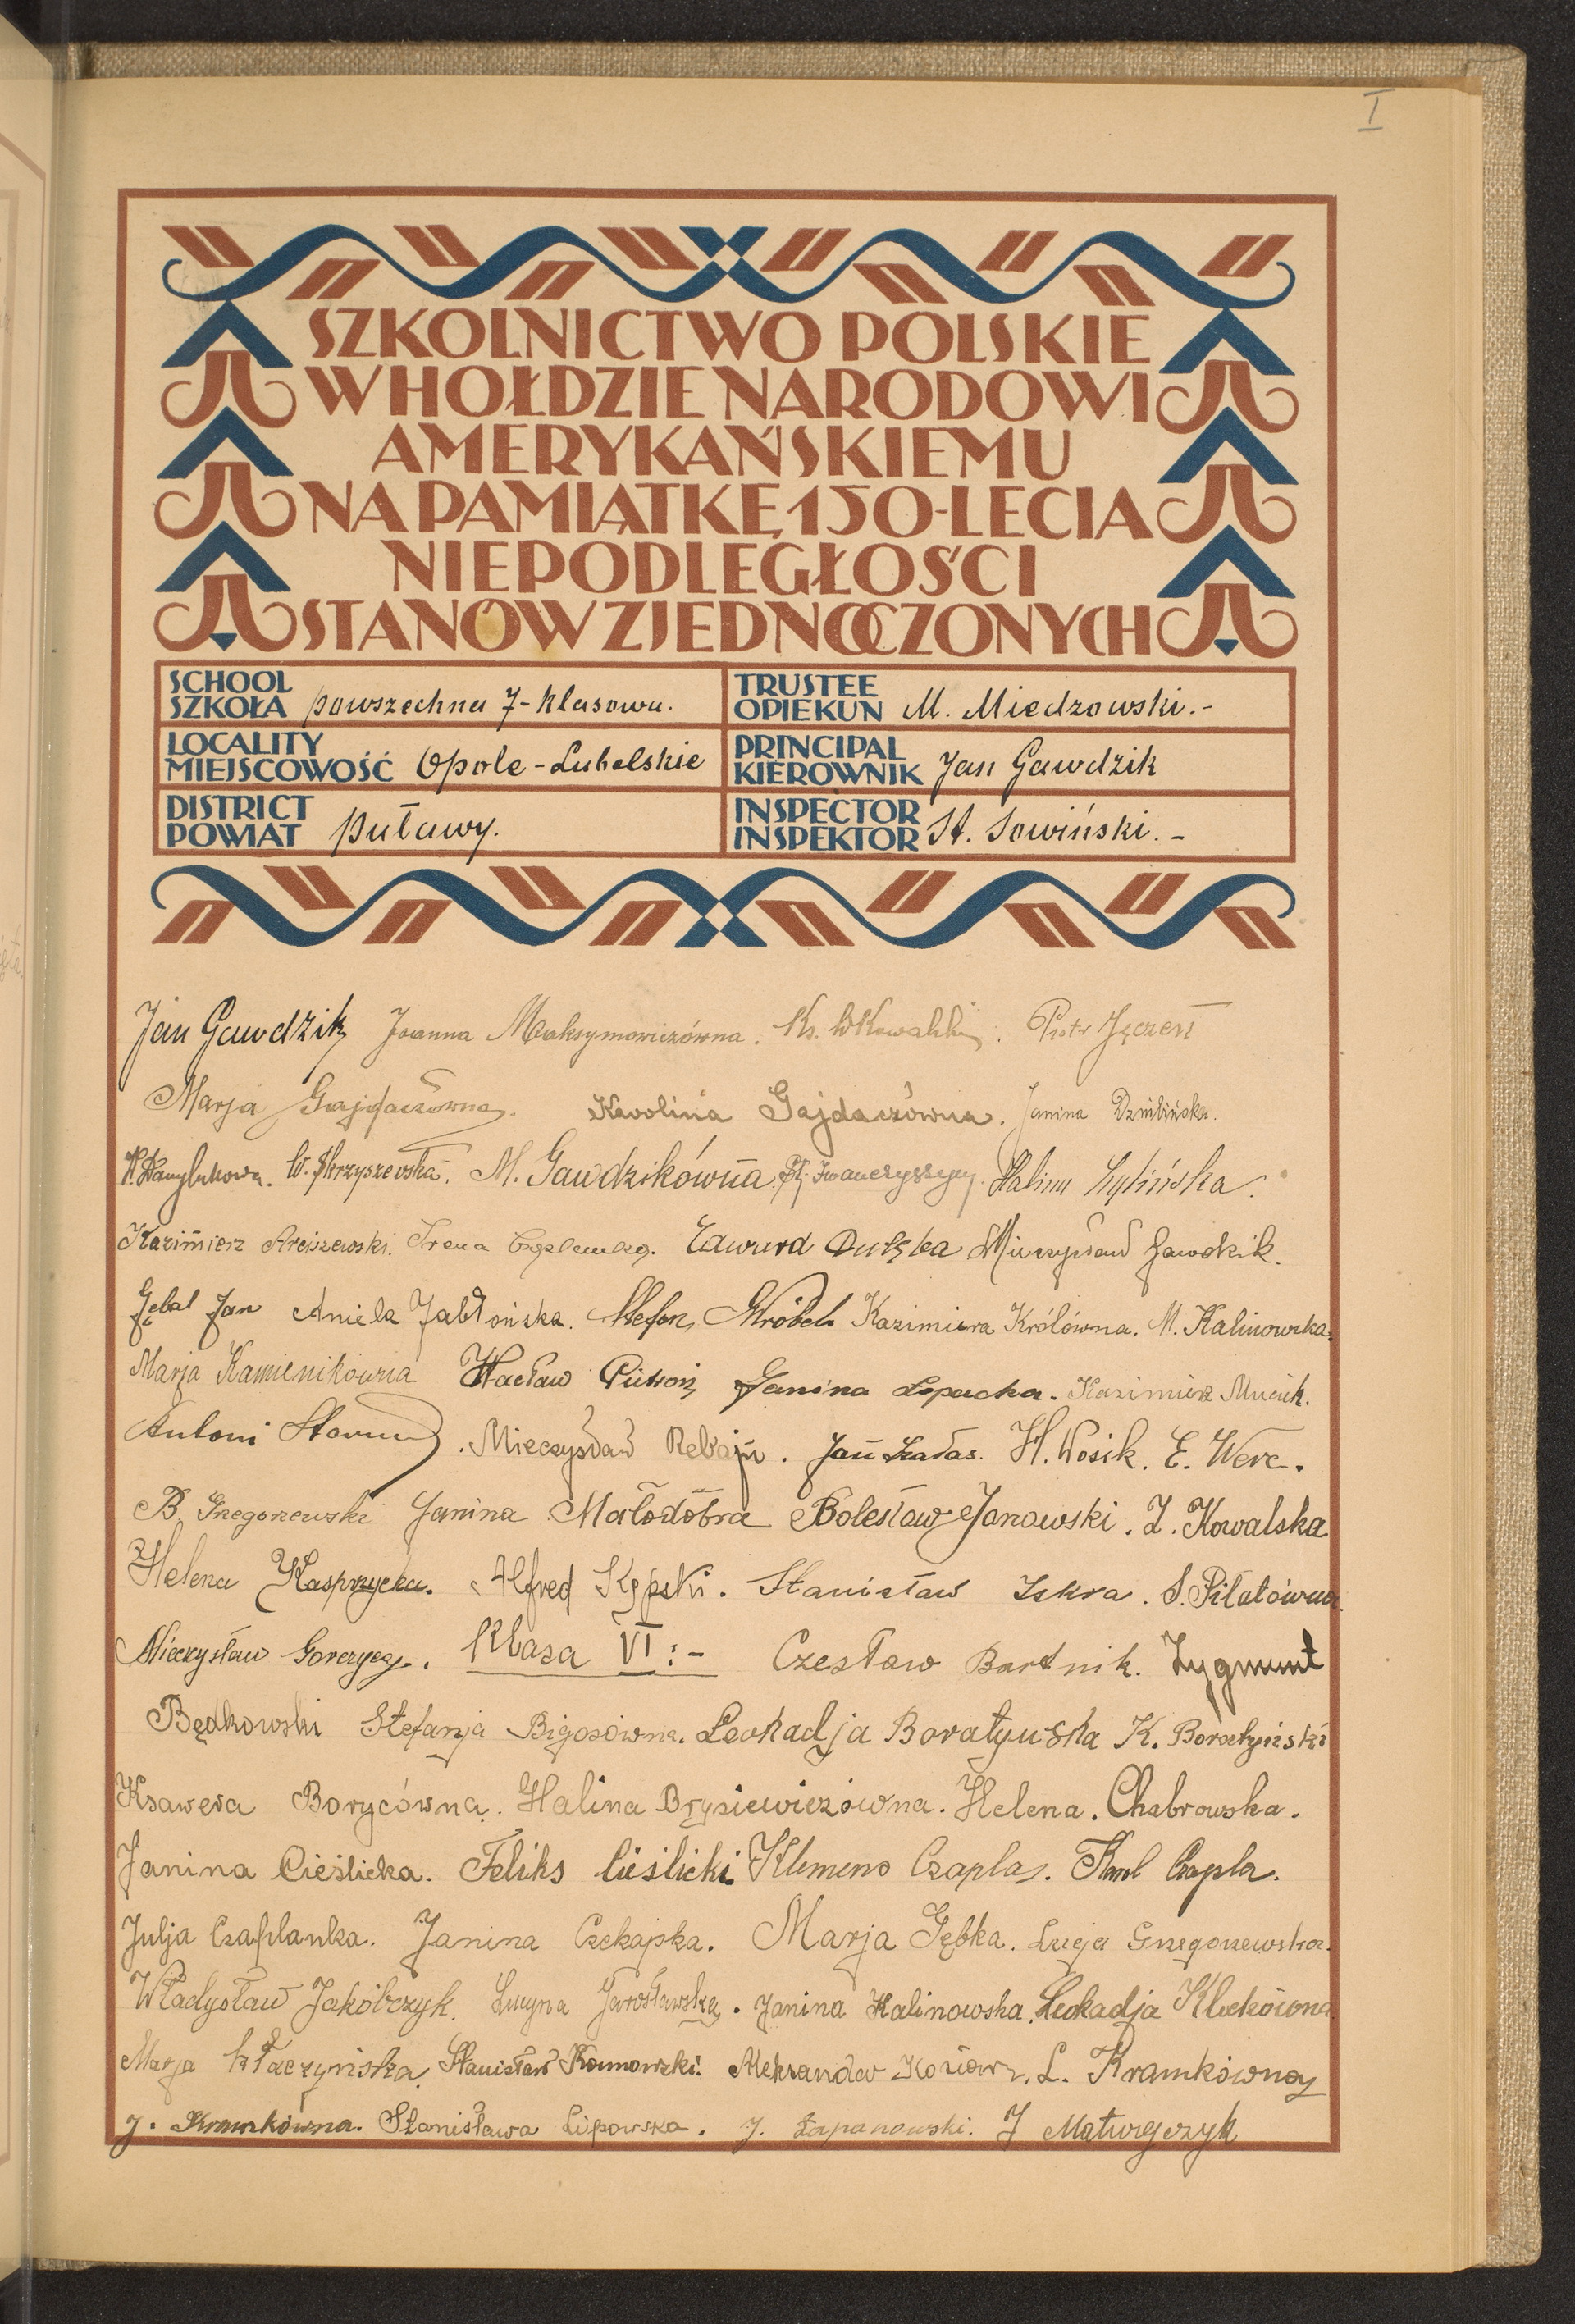 I
SZKOLNICTWO POLSKIE
W HOŁDZIE NARODOWI
AMERYKAŃSKIEMU
NA PAMIĄTKĘ 150-LECIA
NIEPODLEGŁOŚCI
STANÓW ZJEDNOCZONYCH
SCHOOL
SZKOŁA powszechna 7-klasowa.
TRUSTEE
OPIEKUN M. Miedzowski.-
LOCALITY
MIEJSCOWOŚĆ Opole-Lubelskie
PRINCIPAL
KIEROWNIK Jan Gawdzik
DISTRICT
POWIAT Puławy.
INSPECTOR
INSPEKTOR St. Sowiński.-
Jan Gawdzik Joanna Maksymowiczówna. Ks. WKowalski. Piotr
Marja Gajdaczówna. Karolina Gajdaczówna. Janina
W. Skrzyszewska. M. Gawdzikówna. Halina
Kazimierz Arciszewski. Irena Edward Dułęba Mieczysław Gawdzik.
Gębal Jan Aniela Jabłońska. Stefan Wróbel Kazimiera Królówna. M. Kalinowska.
Marja Kamienikówna Wacław Pietroń Janina Łopacka. Kazimierz Muciek.
Antoni . Mieczysław . Jan Szałas. H. Wosik. E. Werc.
B. Gregorzewski Janina Małodobra Bolesław Janowski. Z. Kowalska
Helena Kasprzycka. Alfred Kępski. Stanisław Iskra. S. Piłatówna
Mieczysław Gorzyca. Klasa VI:- Czesław Bartnik. Zygmunt
Będkowski Stefanja Bigosówna. Leokadja Boratyńska K. Boratyński
Ksawera Borycówna. Halina Brysiewiczówna. Helena. Chabrowska.
Janina Cieślicka. Feliks Cieślicki Klemens Czapla. Karol Czapla.
Julja Czaplanka. Janina Czekajska. Marja Gębka. Łucja Gregorzewska.
Władysław Jakóbczyk. Lucyna Jarosławska. Janina Kalinowska. Leokadja Klockówna
Marja Kłaczyńska. Stanisław Komowski. Aleksander Kozioł. L. Kramkówna
J. Kramkówna. Stanisława Lipowska. J. Łapanowski. J Maturzyk